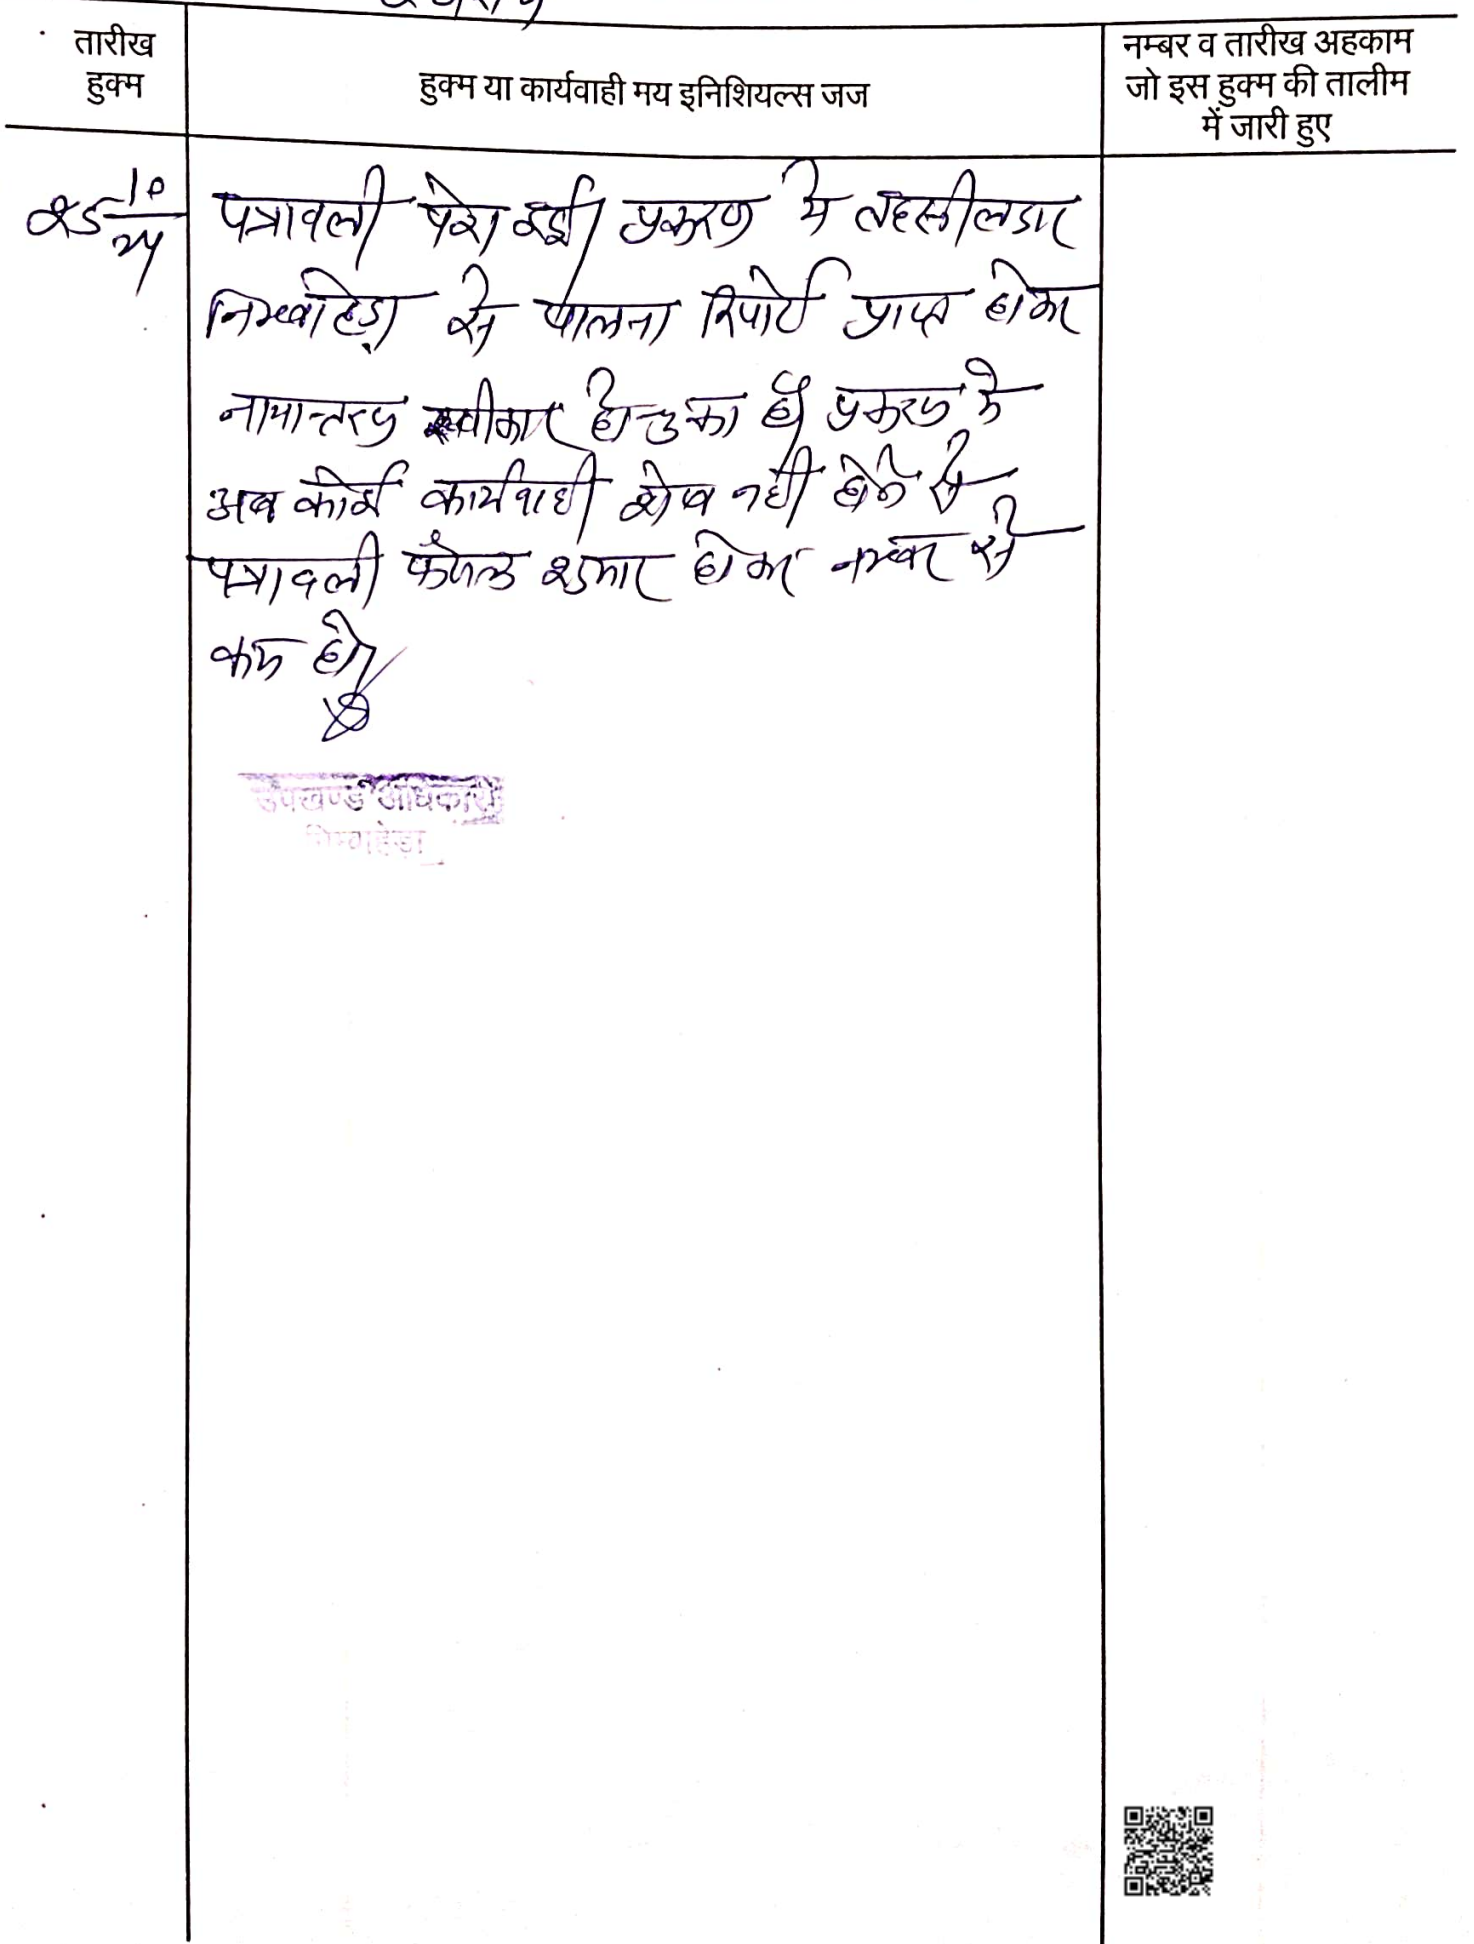 तारीख
हुक्म
हुक्म या कार्यवाही मय इनिशियल्स जज
नम्बर व तारीख अहकाम
जो इस हुक्म की तालीम
में जारी हुए
पत्रावली पेश हुई। प्रकरण मे तहसीलदार
निम्बाहेड़ा से पालना रिपोर्ट प्राप्त होकर
नामान्तरण स्वीकार हो चुका है। प्रकरण मे
अब कोई कार्यवाही शेष नही होने से
पत्रावली फैसल शुमार होकर नम्बर से
कम हो।
उपखण्ड अधिकारी
निम्बाहेड़ा